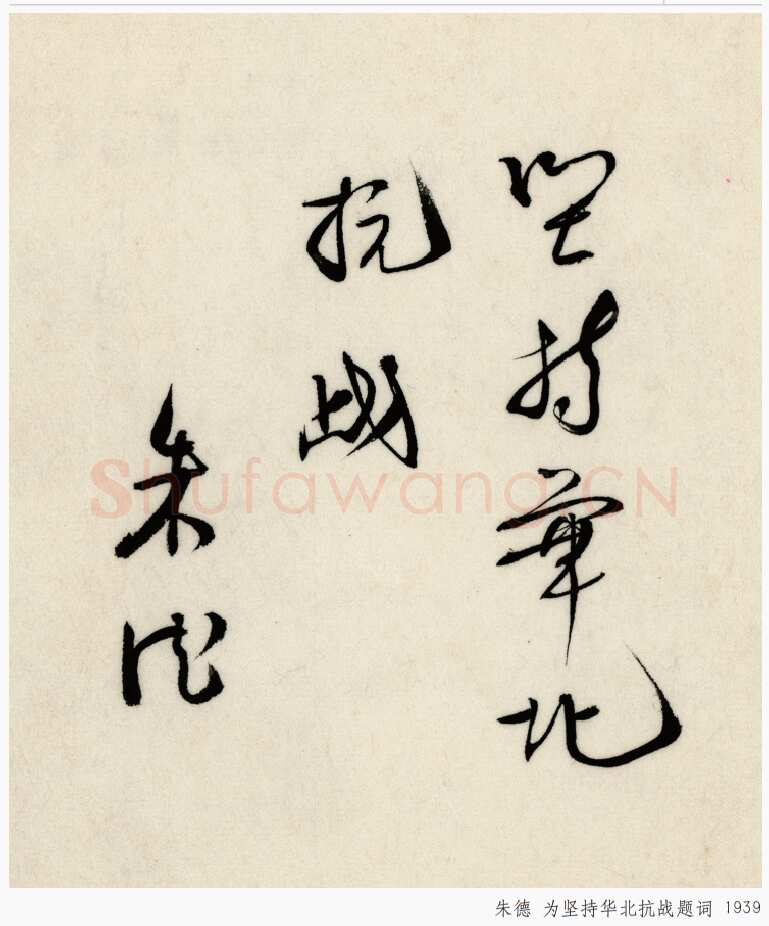 坚持華北
抗战
朱德
Shufawang.CN
朱德 为坚持华北抗战题词 1939